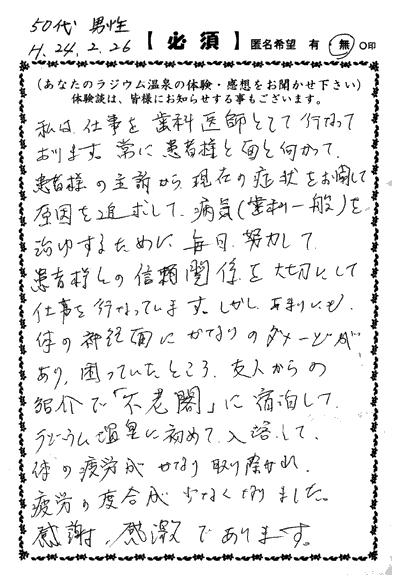 50代 男性
H.24.2.26 【必須】 匿名希望 有・無 ○印
(あなたのラジウム温泉の体験・感想をお聞かせ下さい)
体験談は、皆様にお知らせする事もございます。
私は、仕事を歯科医師として行なって
おります。常に患者様と面と向かって、
患者様の主訴から現在の症状をお聞して
原因を追求して、病気(歯科一般)を
治ゆするために、毎日、努力して、
患者様との信頼関係を大切にして
仕事を行なっています。しかし、あまりにも、
体の神経面にかなりのダメージが
あり、困っていたところ、友人からの
紹介で「不老閣」に宿泊して、
ラジウム温泉に初めて入浴して、
体の疲労感がかなり取り除かれ、
疲労の度合が少なくなりました。
感謝、感激であります。